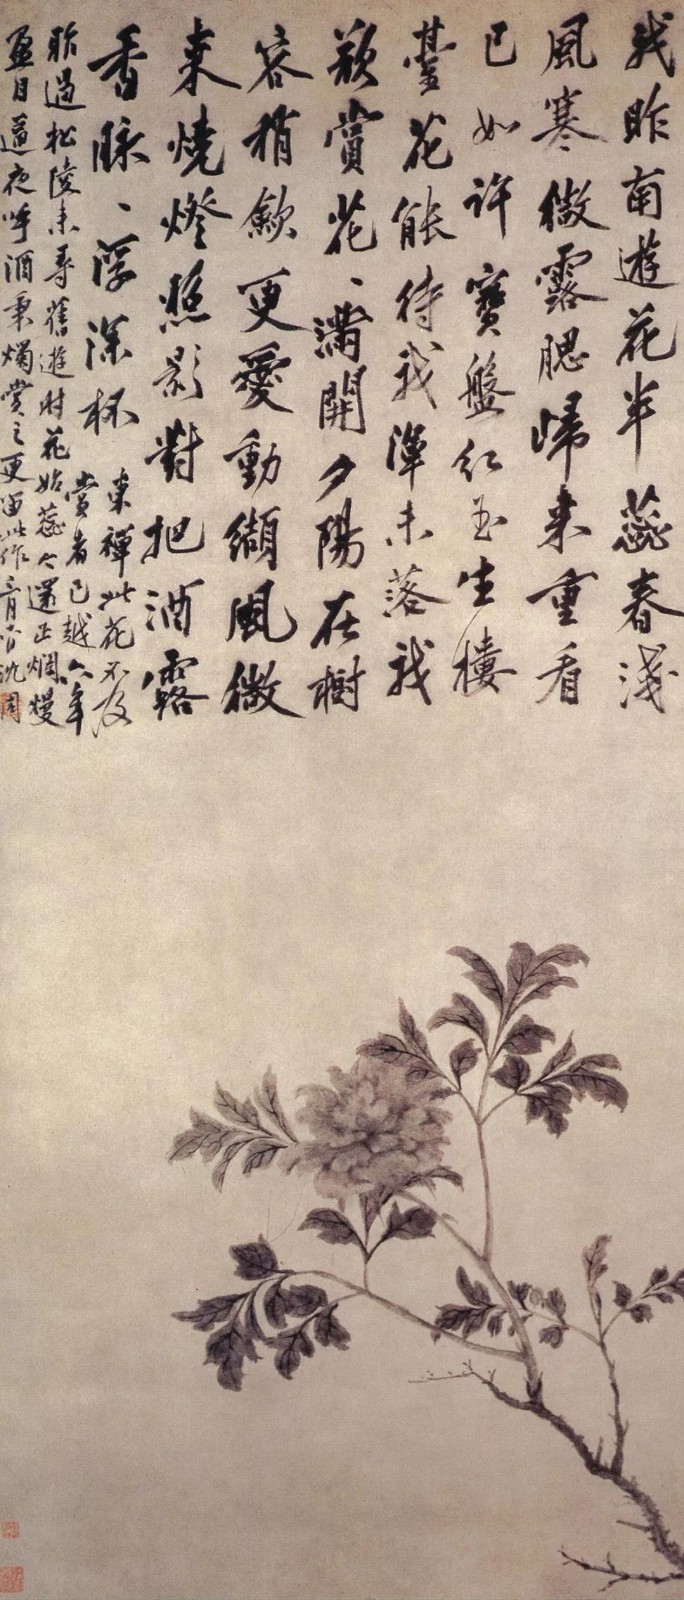 我昨南遊花半蕊春淺
風寒微露腮歸來重看
已如許寶盤紅玉生樓
臺花能待我渾未落我
欲賞花、滿開夕陽在樹
容稍斂更愛動纈風微
來燒燈照影對把酒露
香脉、浮深杯 東禪此花不及
賞者已越六年
昨過松陵未尋舊遊時花始蕊今還正爛熳
盈目逼夜呼酒秉燭賞之更留此作 沈周